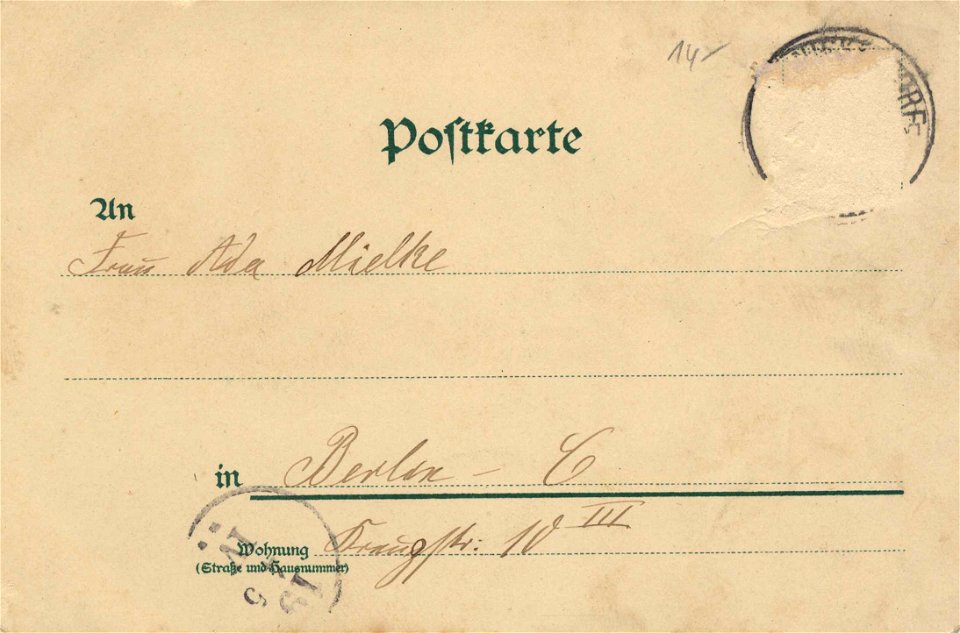 14-
ORF
Postkarte
An
Frau Ada Mielke
in Berlin - C
Wohnung
(Straße und Hausnummer)
10 III
N